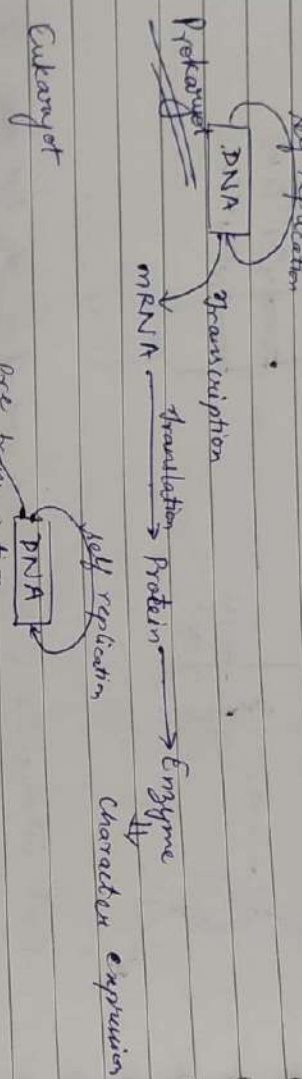 Self replication
DNA
Prokaryot
Transcription
mRNA Translation Protein Enzyme
Character expression
self replication
DNA
Eukaryot